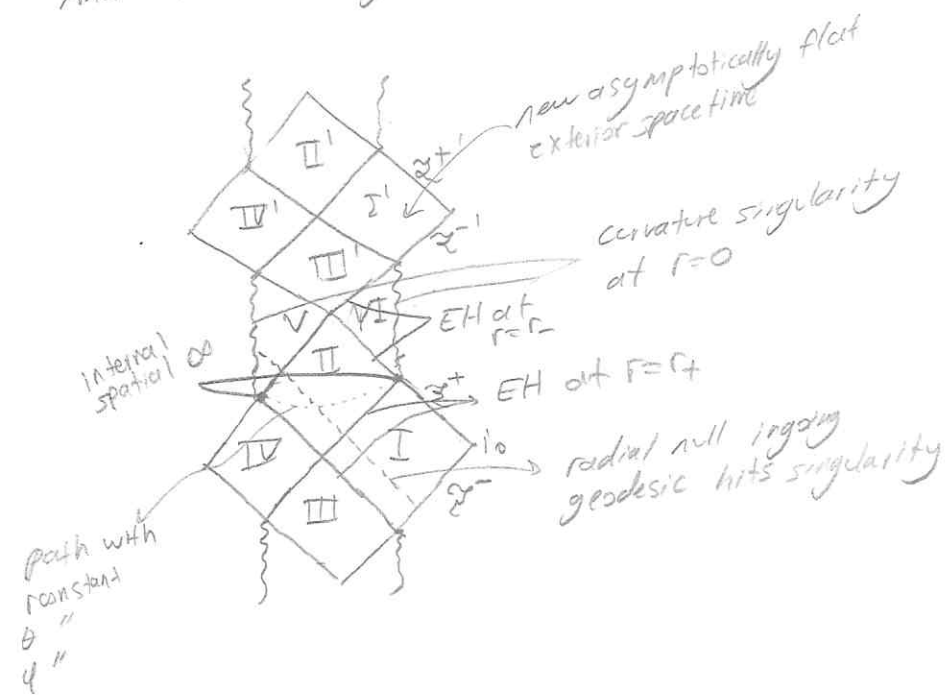 new asymptotically flat
exterior spacetime
II'
ℐ+'
IV'
I'
ℐ-'
III'
curvature singularity
at r=0
V
VI
EH at
r=r-
II
internal
spatial ∞
ℐ+
EH at r=r+
IV
I
i0
ℐ-
radial null ingoing
geodesic hits singularity
III
path with
r constant
θ "
φ "